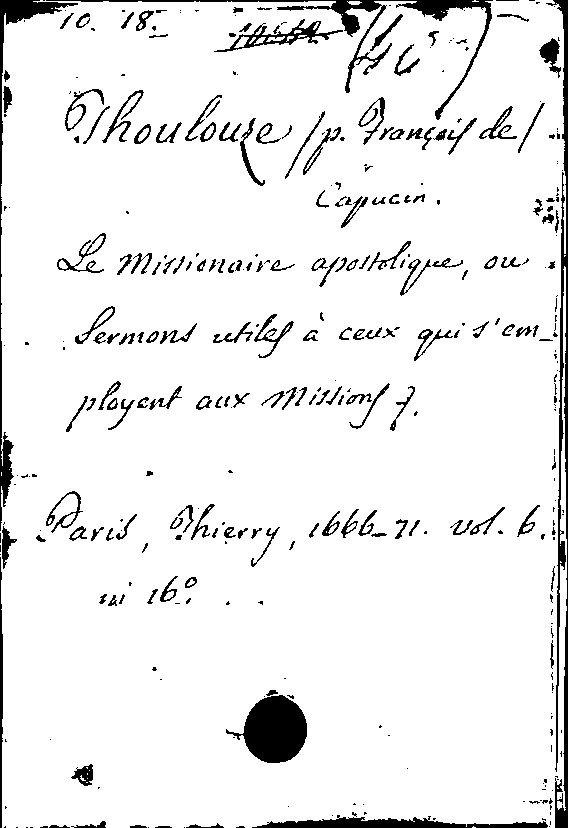 10. 18.
Thoulouze /p. François de/
Capucin.
Le Missionaire apostolique, ou
Sermons utiles à ceux qui s'em-
ployent aux Missions &.
Paris, Thierry, 1666-71. vol. 6.
in 16º.